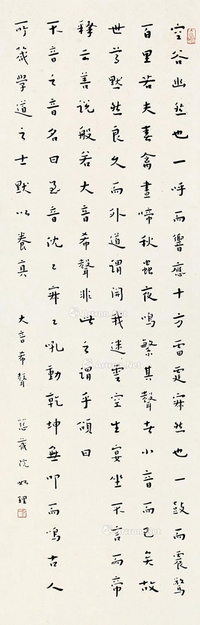 空谷幽然也一呼而響應十方雷霆寂然也一鼓而震驚
百里若夫春禽晝啼秋蟲夜鳴繁其聲者小音而已矣故
世尊默然良久而外道謂開我迷雲空生宴坐不言而帝
釋云善說般若大音希聲非此之謂乎頌曰
不音之音名曰至音沈沈寂寂吼動乾坤無叩而鳴古人
所箴學道之士默以養真
大音希聲